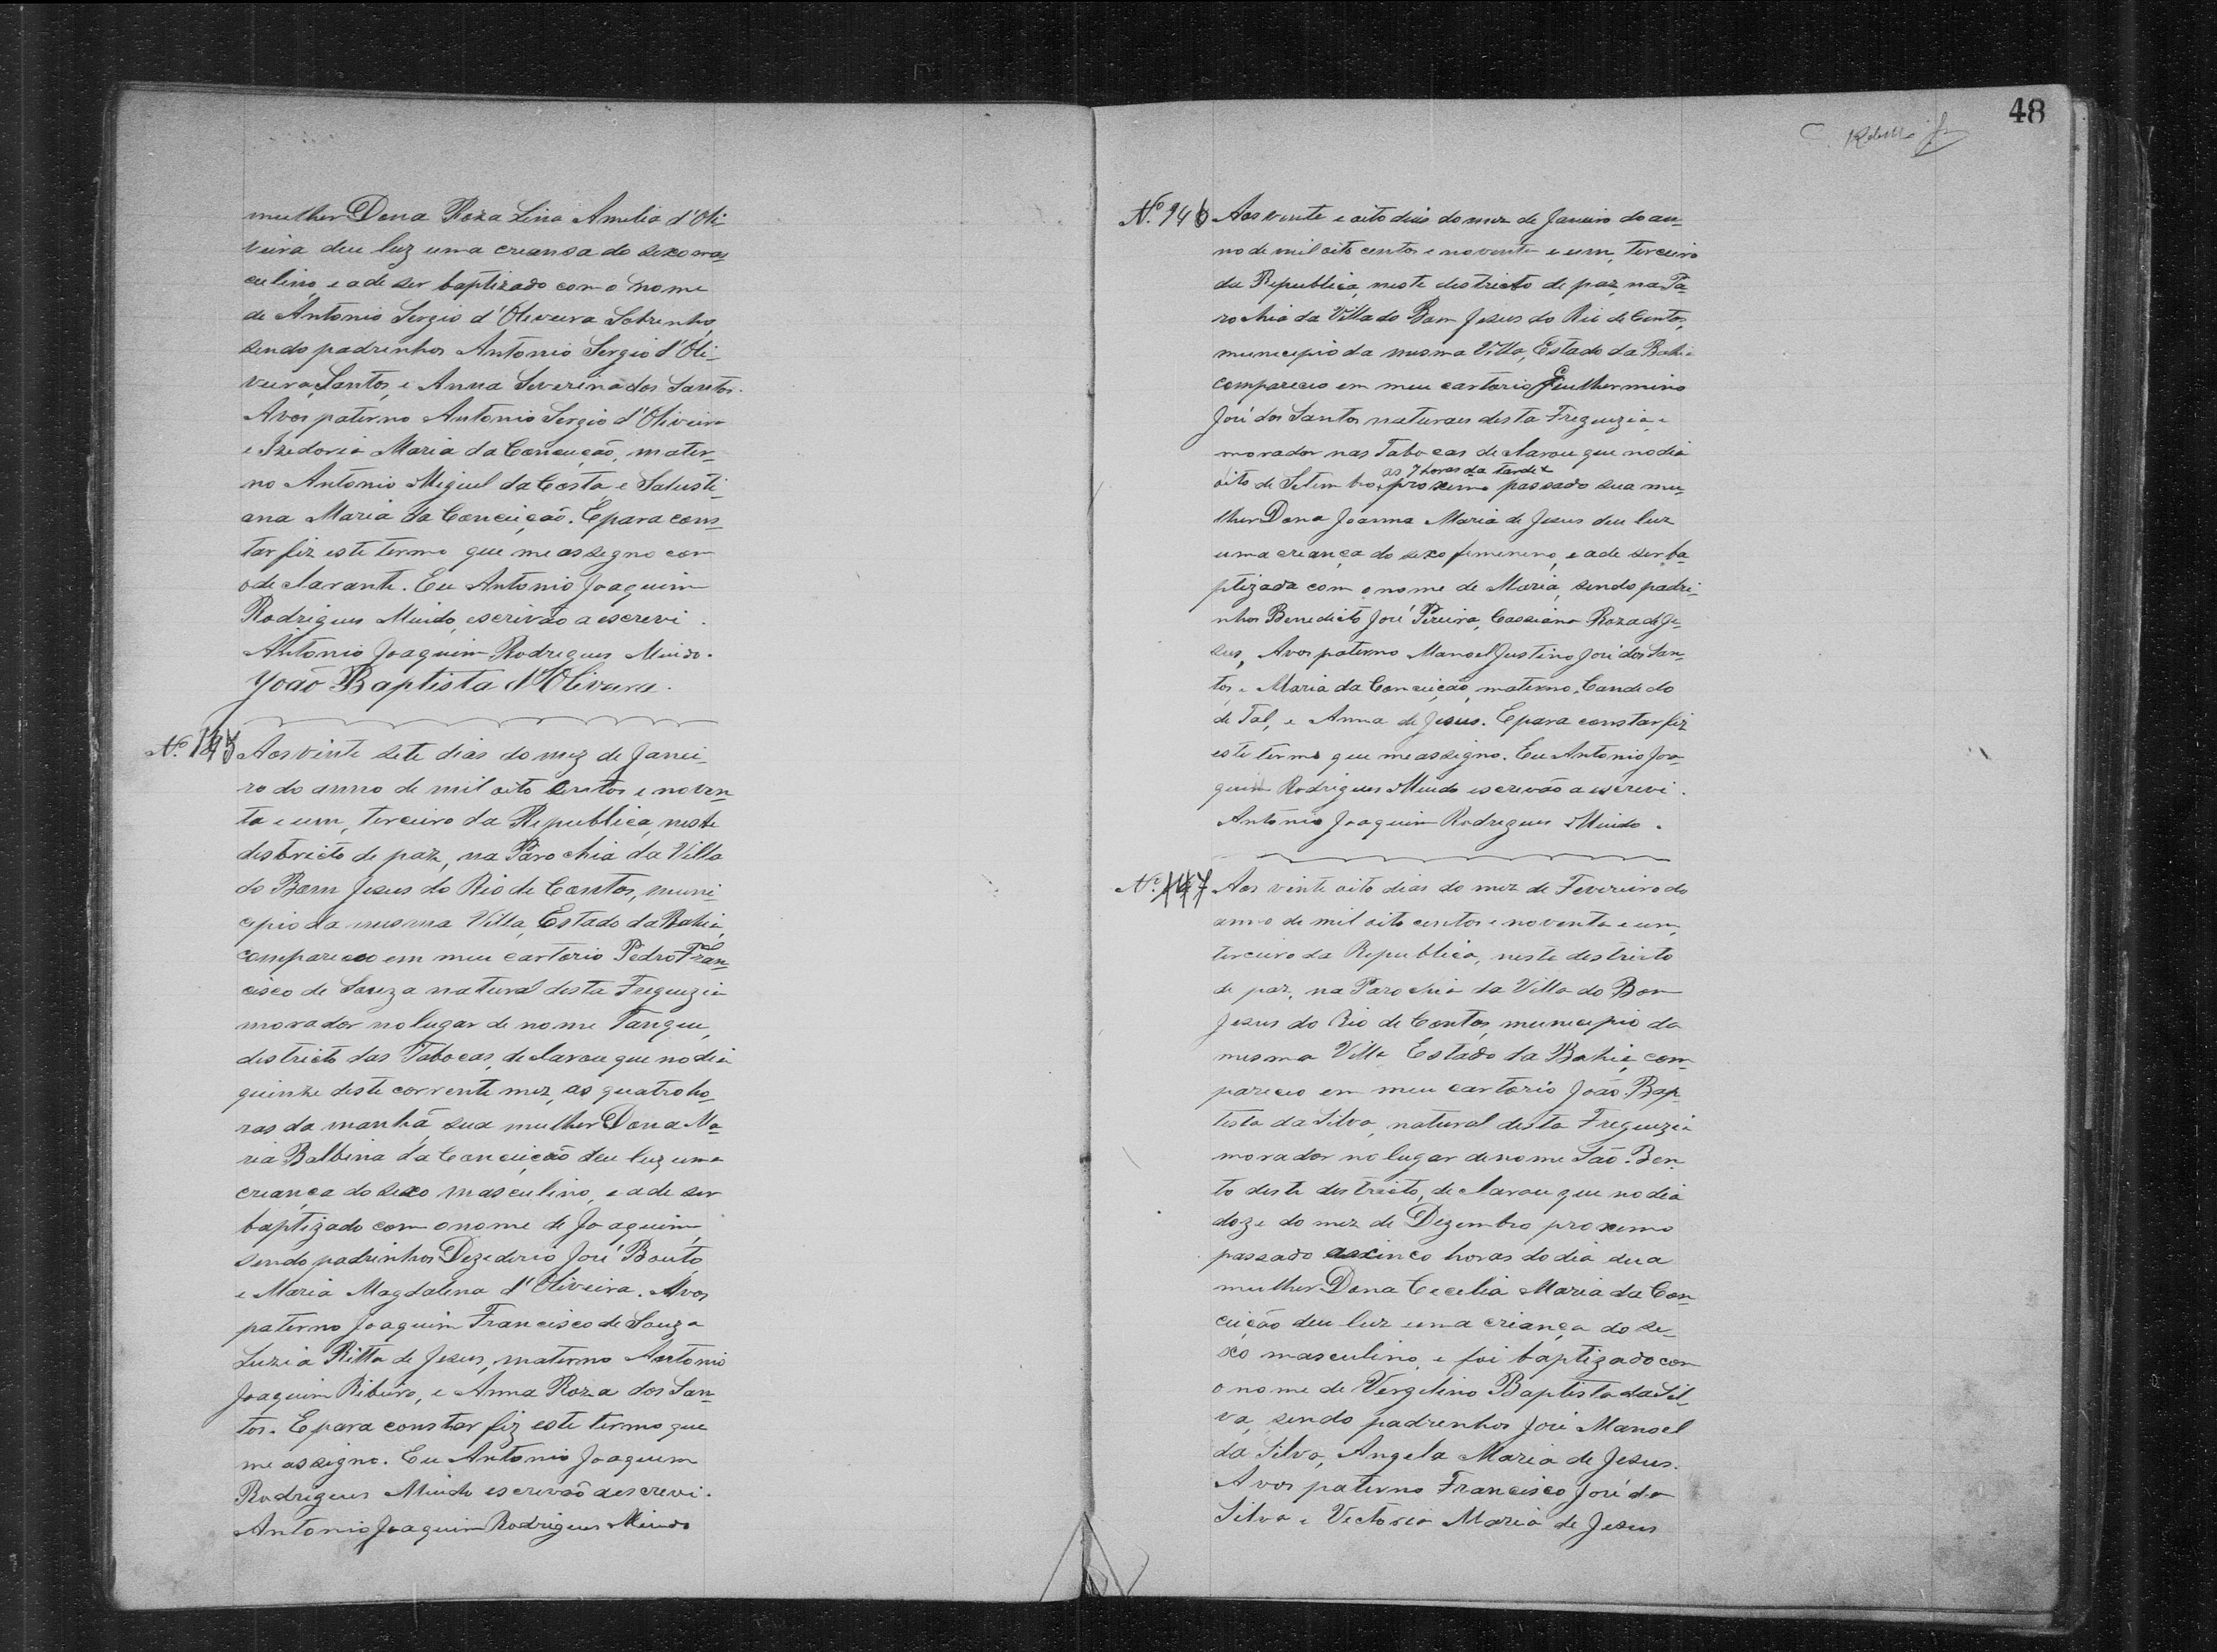 mulher Dona Roza Lina Amelia d'Oli-
veira deu luz uma creansa do sexo mas-
culino, e ade ser baptizado com o nome
de Antonio Sergio d'Oliveira Sobrinho,
sendo padrinhos Antonio Sergio d'Oli-
veira Santos, e Anna Severina dos Santos.
Avos paterno Antonio Sergio d'Oliveira
e Izedoria Maria da Conceição, mater-
no Antonio Miguel da Costa, e Salusti-
ana Maria da Conceição. E para cons-
tar fiz este termo que me assegno com
o declarante. Eu Antonio Joaquim
Rodrigues Muido, escrivão a escrevi.
Antonio Joaquim Rodrigues Muido.
João Baptista d'Oliveira.
Nº 145 Aos vinte sete dias do mez de Janei-
ro do anno de mil oito centos e noven-
ta e um, terceiro da Republica, neste
destricto de paz, na Parochia da Villa
do Bom Jesus do Rio de Contas, muni-
cipio da mesma Villa, Estado da Bahia,
compareceo em meu cartorio Pedro Fran-
cisco de Souza natural desta Freguezia
morador no lugar de nome Tanque,
destricto das Tabocas, declarou que no dia
quinze deste corrente mez, as quatro ho-
ras da manhã, sua mulher Dona Ma-
ria Balbina da Conceição deu luz uma
creança do sexo masculino, e ade ser
baptizado com o nome de Joaquim,
sendo padrinhos Dezederio José Bouto
e Maria Magdalena d'Oliveira. Avos
paterno Joaquim Francisco de Souza
Luzia Ritta de Jesus, materno Antonio
Joaquim Ribeiro, e Anna Roza dos San-
tos. E para constar fiz este termo que
me assigno. Eu Antonio Joaquim
Rodrigues Muido escrevão a escrevi.
Antonio Joaquim Rodrigues Muido
48
Nº 146 Aos vinte e oito dias do mez de Janeiro do an-
no de mil oito centos e noventa e um, terceiro
da Republica, neste destricto de paz, na Pa-
rochia da Villa do Bom Jesus do Rio de Contas,
municipio da mesma Villa, Estado da Bahia
compareceo em meu cartorio Guilhermino
José dos Santos naturaes desta Freguezia e
morador nas Tabocas declarou que no dia
as 7 horas da tarde
oito de Setembro, proximo passado sua mu-
lher Dona Joanna Maria de Jesus deu luz
uma creança do sexo femenino, e ade ser ba-
ptizada com o nome de Maria, sendo padri-
nhos Benedicto José Pereira, Cassiana Roza de Je-
sus, Avos paterno Manoel Justino José dos San-
tos e Maria da Conceição, materno, Candido
de Tal, e Anna de Jesus. E para constar fiz
este termo que me assigno. Eu Antonio Joa-
quim Rodrigues Muido escrevão a escrevi.
Antonio Joaquim Rodrigues Muido.
Nº 147 Aos vinte oito dias do mez de Fevereiro do
anno de mil oito centos e noventa e um,
terceiro da Republica, neste destricto
de paz, na Parochia da Villa do Bom
Jesus do Rio de Contas, municipio da
mesma Villa Estado da Bahia, com-
pareceo em meu cartorio João Bap-
tista da Silva, natural desta Freguezia
morador no lugar de nome São Ben-
to deste destricto, declarou que no dia
doze do mez de Dezembro proximo
passado as cinco horas do dia sua
mulher Dona Cecelia Maria da Con-
ceição deu luz uma creança do se-
xo masculino, e foi baptizado com
o nome de Vergelino Baptista da Sil-
va, sendo padrenhos José Manoel
da Silva, Angela Maria de Jesus.
Avos paterno Francisco José da
Silva e Vectoria Maria de Jesus